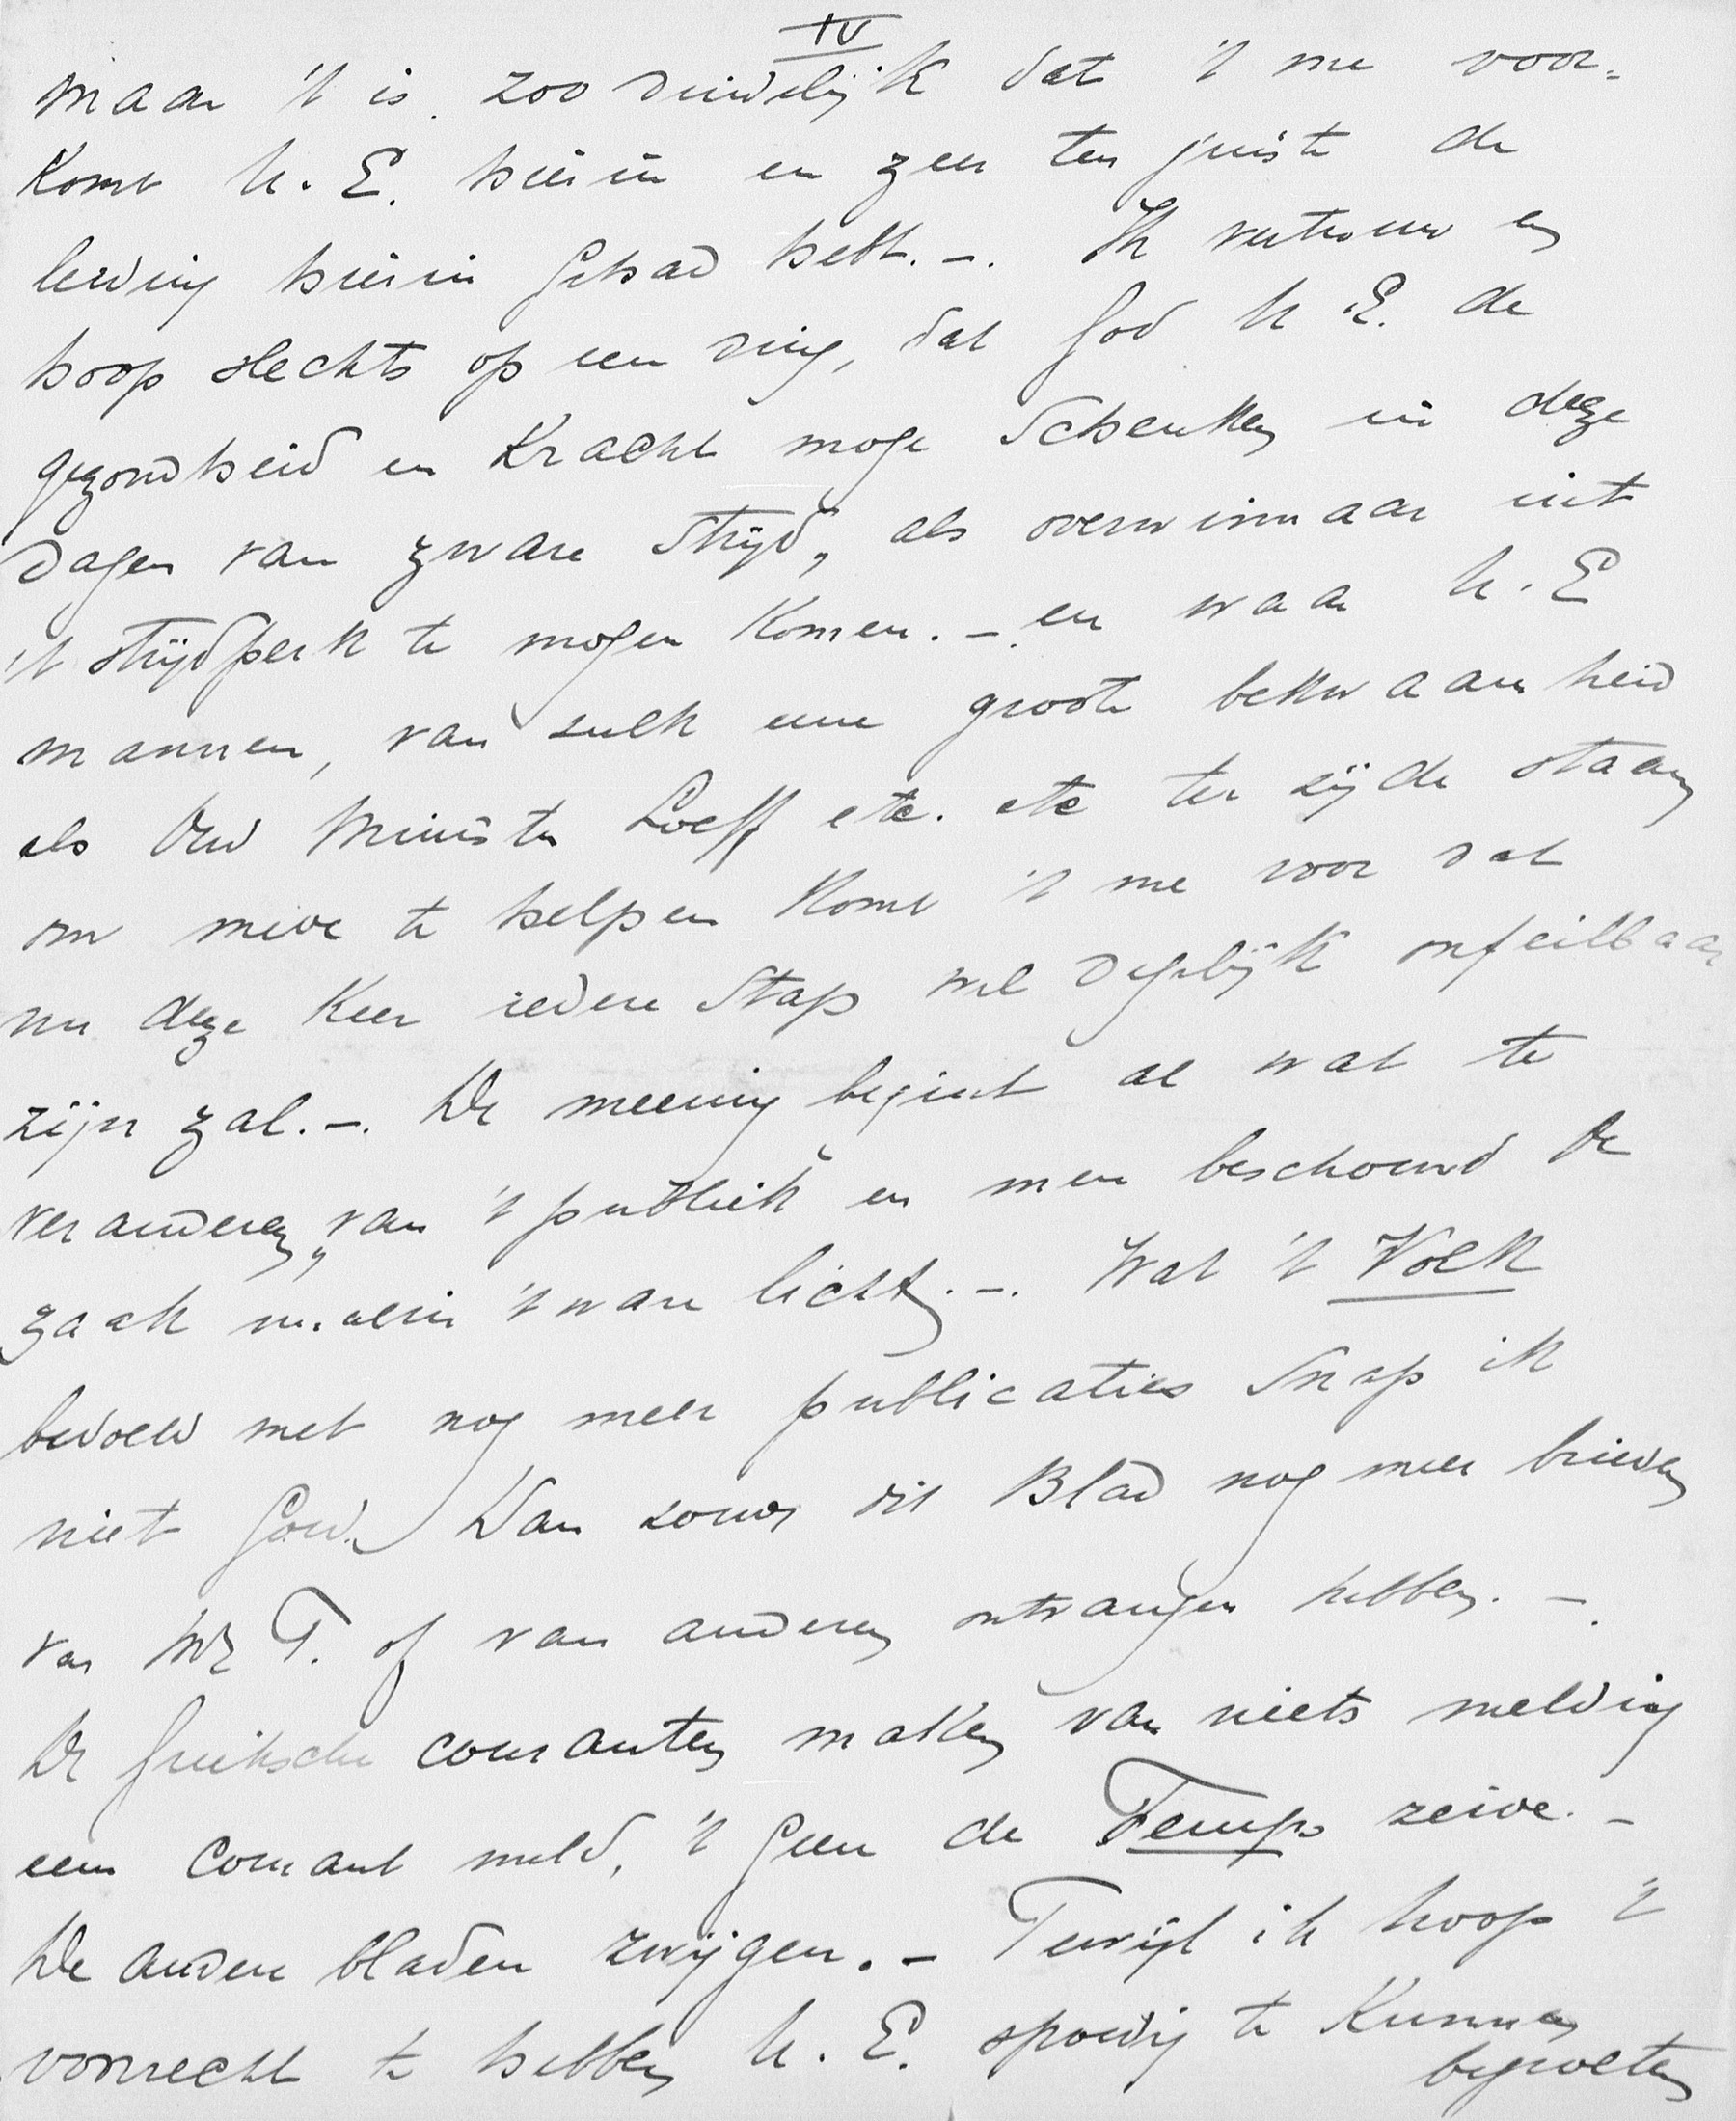 IV
maar 't is zoo duidelijk dat 't me voor-
komt U. E. hierin en zeer ten juiste de
leiding hierin gehad hebt. -. Ik vertrouw en
hoop slechts op een ding, dat God U. E. de
gezondheid en kracht moge schenken in deze
dagen van zware strijd, als overwinnaar uit
't strijdperk te mogen komen. - en waar U. E
mannen, van zulk eene groote bekwaamheid
als Oud Minister Loeff etc. etc ter zijde staan
om mede te helpen komt 't me voor dat
nu deze keer iedere stap wel degelijk onfeilbaar
zijn zal. -. De meening begint al wat te
veranderen, van 't publiek en men beschouwd de
zaak in 't ware licht. -. Wat 't Volk
bedoeld met nog meer publicaties snap ik
niet goed. Dan zoude dit Blad nog meer brieven
van T. of van anderen ontvangen hebben. -.
De Grieksche couranten maken van niets melding
een courant meld, 't geen de Temps zeide. -
De andere bladen zwijgen. - Terwijl ik hoop 't
voorrecht te hebben U. E. spoedig te kunnen
begroeten